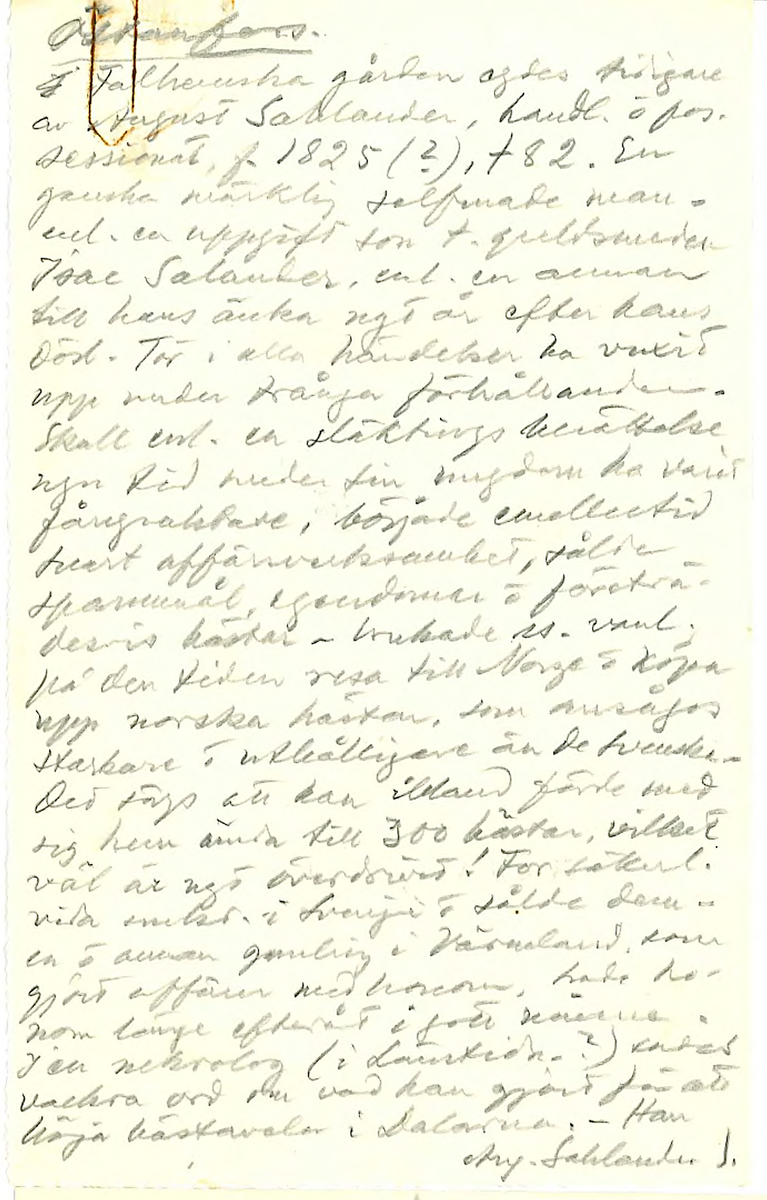 Västanfors.
I Falhemska gården egdes tidigare
av August Sahlander, handl. ö pos-
sessionat, f. 1825 (?), +82. En
ganska märklig selfmade man -
enl. en uppgift son t. guldsmeden
Isac Salander, enl. en annan
till hans änka ngt år efter hans
död. Tör i alla händelser ha vuxit
upp under trånga förhållanden.
Skall enl. en släktings berättelse
ngn tid under sin ungdom ha varit
fångvaktare, började emellertid
snart affärsverksamhet, sålde
spannmål, egendomar ö företrä-
desvis hästar - brukade ss. vanl.
på den tiden resa till Norge ö köpa
upp norska hästar, som ansågos
starkare ö uthålligare än de svenska -
Det sägs att han ibland förde med
sig hem ända till 300 hästar, vilket
väl är ngt överdrivet! For säkerl.
vida omkr. i Sverige ö sålde dem -
en ö annan gamling i Värmland, som
gjort affärer med honom, hade ho-
nom länge efteråt i gott minne.
I en nekrolog (i Länstidn.?)
vackra ord om vad han gjort för att
höja hästaveln i Dalarna. - Han
Aug. Sahlander